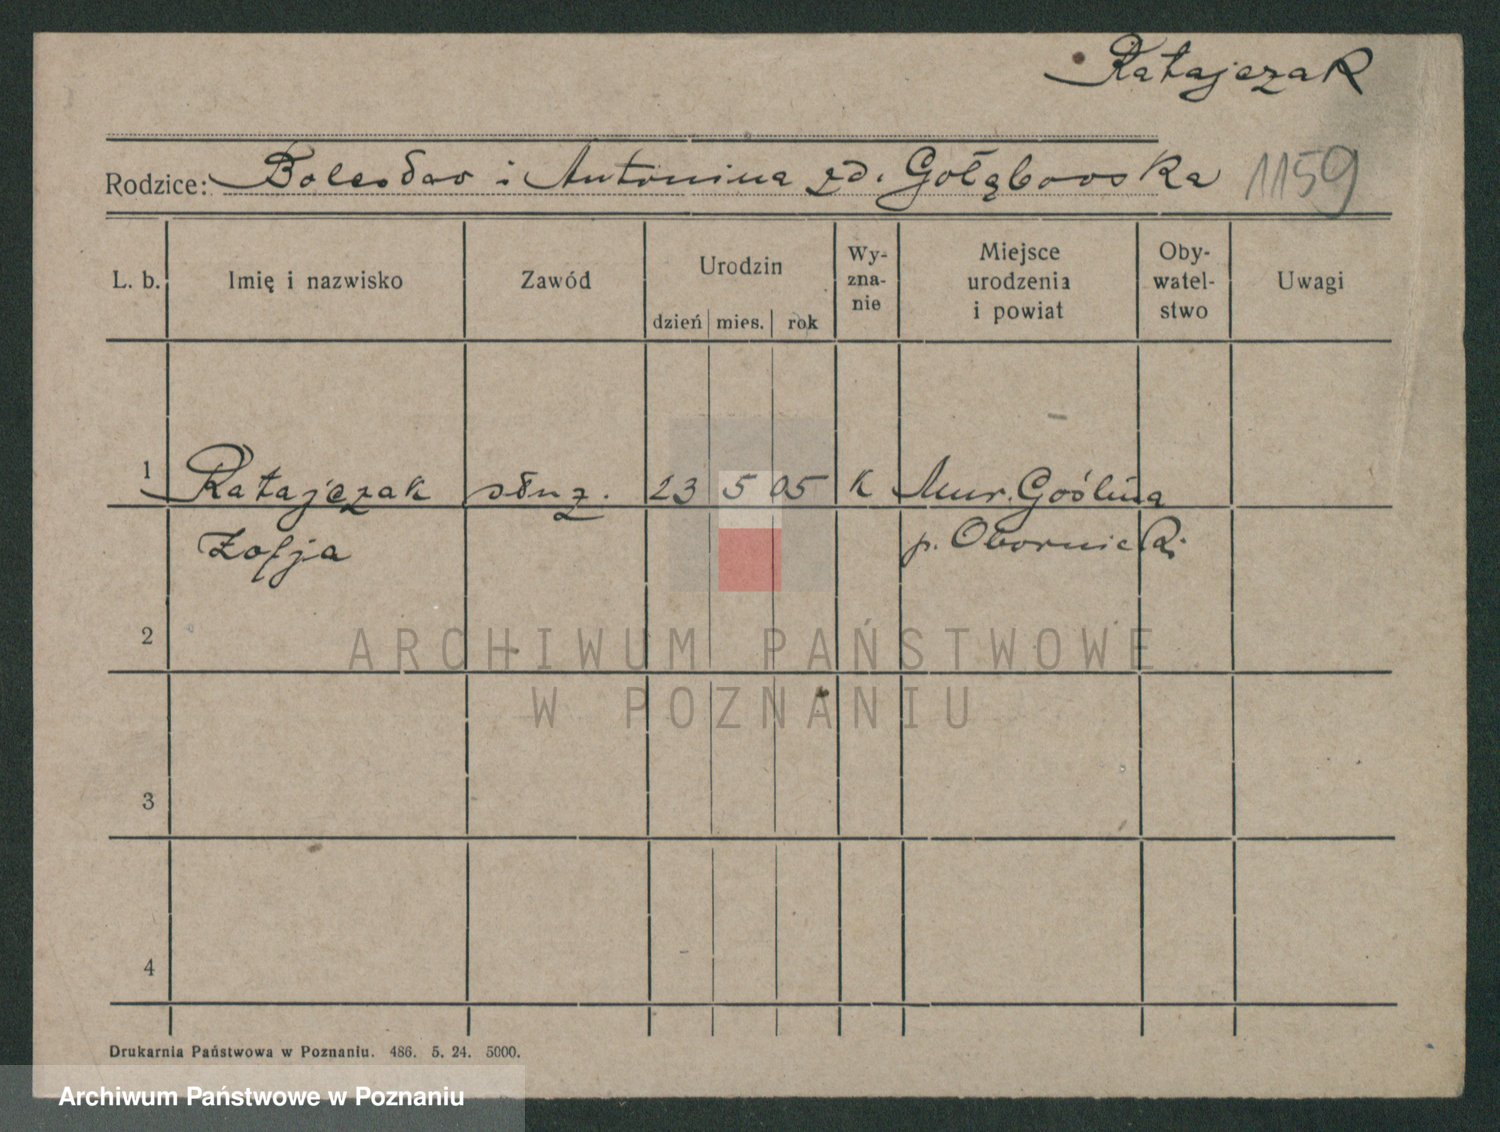 Ratajczak
Rodzice: Bolesław i Antonina zd. Gołąbowska 1159
L. b. Imię i nazwisko Zawód Urodzin dzień mies. rok Wy-zna-nie Miejsce urodzenia i powiat Oby-watel-stwo Uwagi
1 Ratajczak służ. 23 5 05 K Mur. Goślina
Zofja p. Obornicki
2
ARCHIWUM PAŃSTWOWE
W POZNANIU
3
4
Drukarnia Państwowa w Poznaniu. 486. 5. 24. 5000.
Archiwum Państwowe w Poznaniu